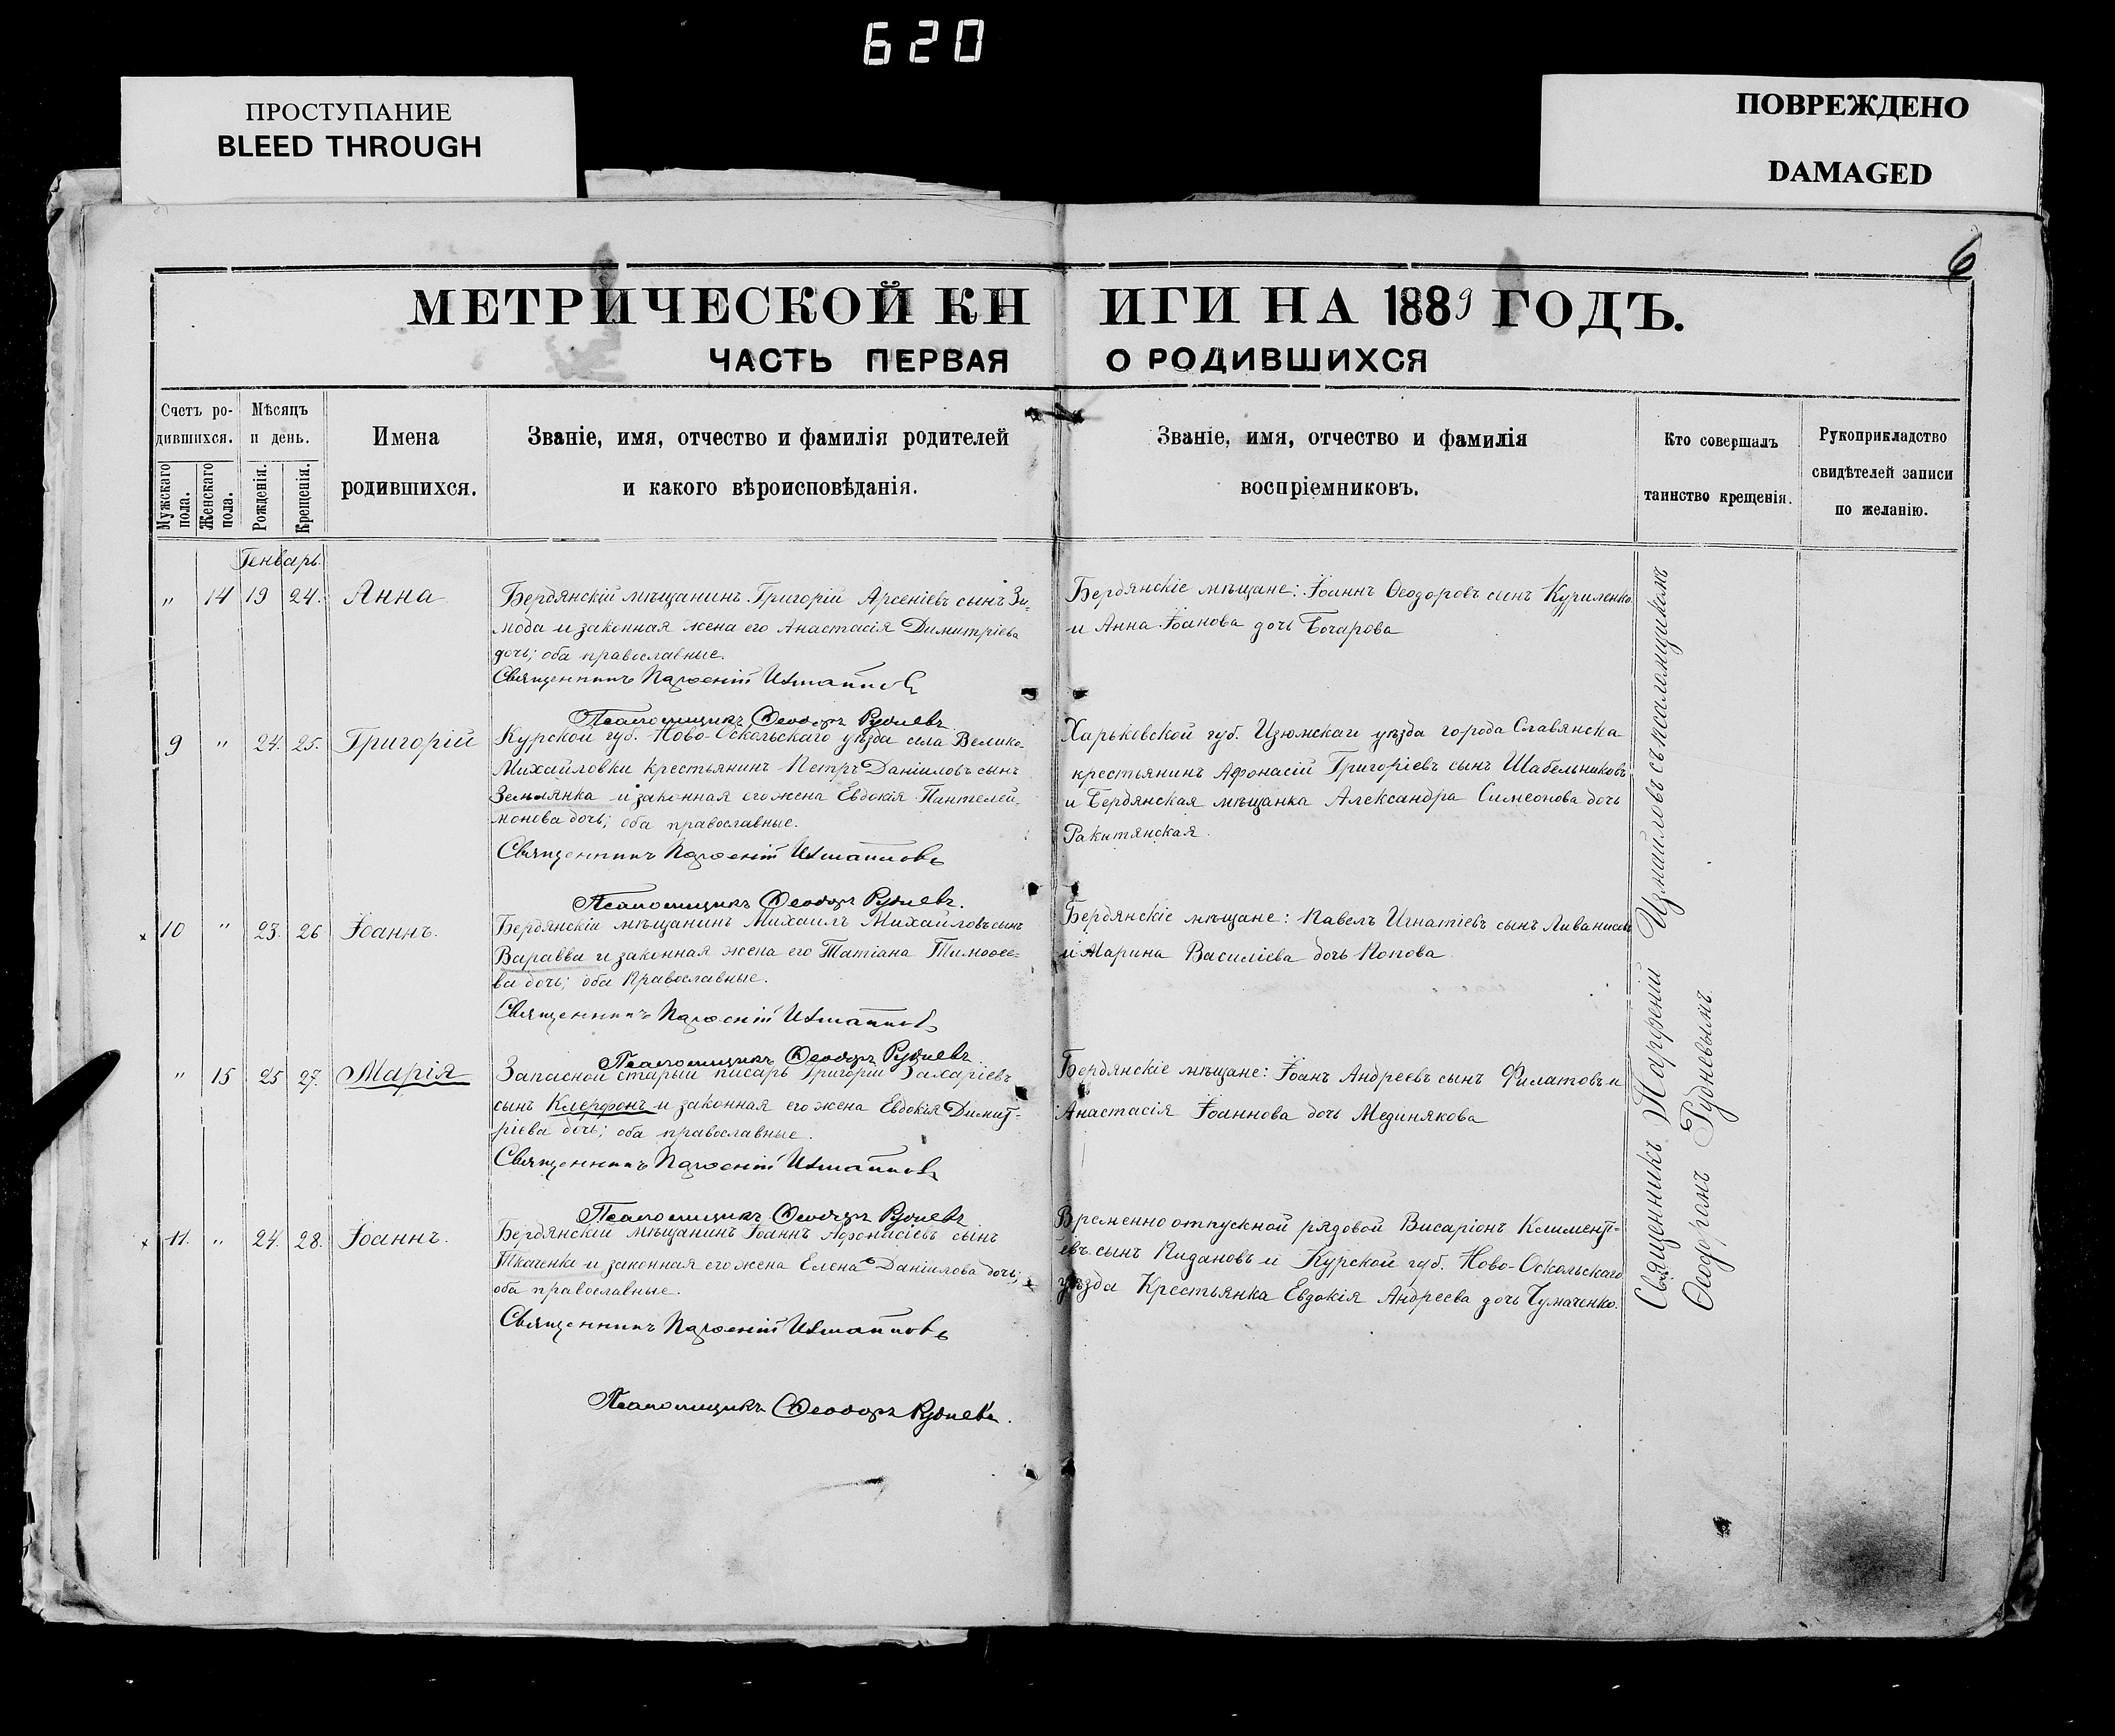 620
ПРОСТУПАНИЕ
BLEED THROUGH
ПОВРЕЖДЕНО
DAMAGED
6
МЕТРИЧЕСКОЙ КНИГИ НА 1889 ГОДЪ.
ЧАСТЬ ПЕРВАЯ О РОДИВШИХСЯ
Счетъ ро-
дившихся.
Мужскаго пола.
Женскаго пола.
Мѣсяцъ
и день.
Рожденія.
Крещенія.
Имена
родившихся.
Званіе, имя, отчество и фамилія родителей
и какого вѣроисповѣданія.
Званіе, имя, отчество и фамилія
воспріемниковъ.
Кто совершалъ
таинство крещенія.
Рукоприкладство
свидѣтелей записи
по желанію.
Генварь.
" 14 19 24. Анна
Бердянскій мѣщанинъ Григорій Арсеніевъ сынъ Зи-
мода и законная жена его Анастасія Димитріева
дочь; оба православные.
Священникъ Парѳеній Измаиловъ
Псаломщикъ Ѳеодоръ Рудневъ
Бердянскіе мѣщане: Іоаннъ Ѳеодоровъ сынъ Куриленко
и Анна Іоанова дочь Бочарова
9 " 24. 25. Григорій
Курской губ. Ново-Оскольскаго уѣзда села Велико-
Михайловки крестьянинъ Петръ Даніиловъ сынъ
Землянка и законная его жена Евдокія Пантелей-
монова дочь; оба православные.
Священникъ Парѳеній Измаиловъ
Псаломщикъ Ѳеодоръ Рудневъ.
Харьковской губ. Изюмскаго уѣзда города Славянска
крестьянинъ Афонасій Григоріевъ сынъ Шабельниковъ
и Бердянская мѣщанка Александра Симеонова дочь
Ракитянская.
х 10 " 23. 26 Іоаннъ.
Бердянскій мѣщанинъ Михаилъ Михайловъ сынъ
Варавва и законная жена его Татіана Тимоѳее-
ва дочь; оба Православные.
Священникъ Парѳеній Измаиловъ
Псаломщикъ Ѳеодоръ Рудневъ.
Бердянскіе мѣщане: Павелъ Игнатіевъ сынъ
и Марина Василіева дочь Попова.
" 15 25 27. Марія
Запасной старый писарь Григорій Захаріевъ
сынъ Клерфонъ и законная его жена Евдокія Димит-
ріева дочь; оба православные.
Священникъ Парѳеній Измаиловъ
Псаломщикъ Ѳеодоръ Рудневъ
Бердянскіе мѣщане: Іоанъ Андреевъ сынъ Филатовъ и
Анастасія Іоаннова дочь Мединякова
х 11. " 24. 28. Іоаннъ.
Бердянскій мѣщанинъ Іоаннъ Афонасіевъ сынъ
Ткаченко и законная его жена Елена Даніилова дочь;
оба православные.
Священникъ Парѳеній Измаиловъ
Псаломщикъ Ѳеодоръ Рудневъ.
Временно отпускной рядовой Висаріонъ Климент-
евъ сынъ Пидановъ и Курской губ. Ново-Оскольскаго
уѣзда Крестьянка Евдокія Андреева дочь Чумаченко.
Священникъ Парфеній Измаиловъ съ псаломщикомъ
Ѳеодоромъ Рудневымъ.